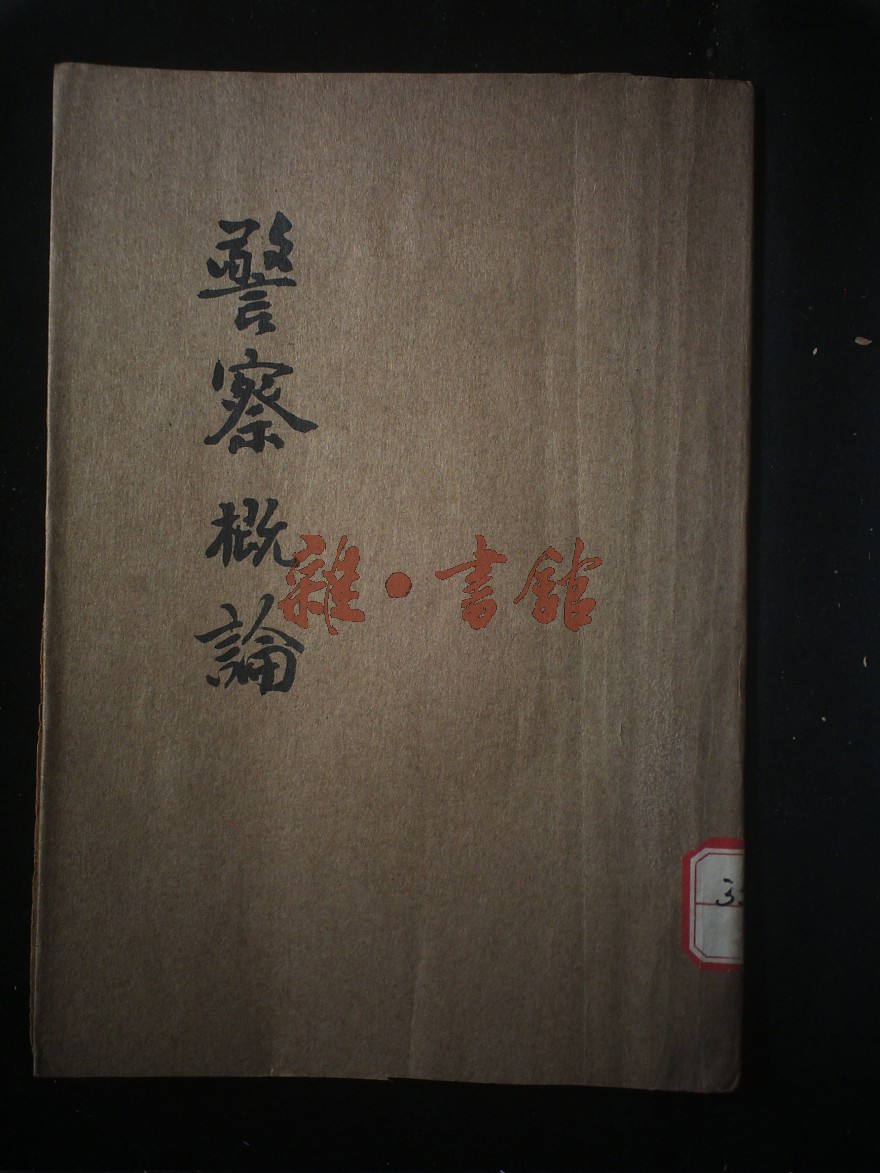 警察概論
雜·書館